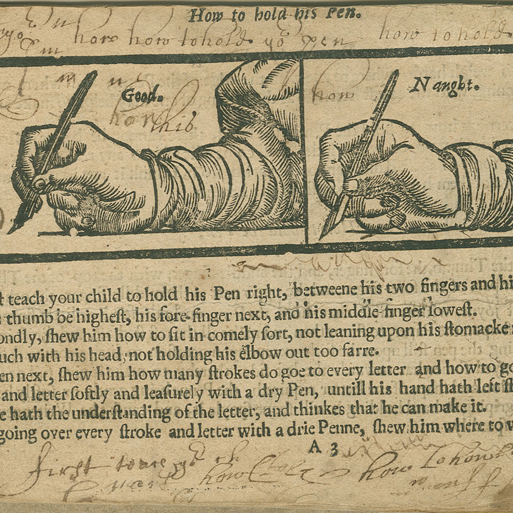 How to hold his Pen.
how how to hold yor pen how to hold
Good. Naught.
how
teach your child to hold his Pen right, betweene his two fingers and hi
thumb be highest, his fore-finger next, and his middle finger lowest.
ondly, shew him how to sit in comely sort, not leaning upon his stomacke
uch with his head, not holding his elbow out too farre.
en next, shew him how many strokes do goe to every letter and how to go
and letter softly and leasurely with a dry Pen, untill his hand hath left
e hath the understanding of the letter, and thinkes that he can make it.
going over every stroke and letter with a drie Penne, shew him where to
A 3
first
how to how